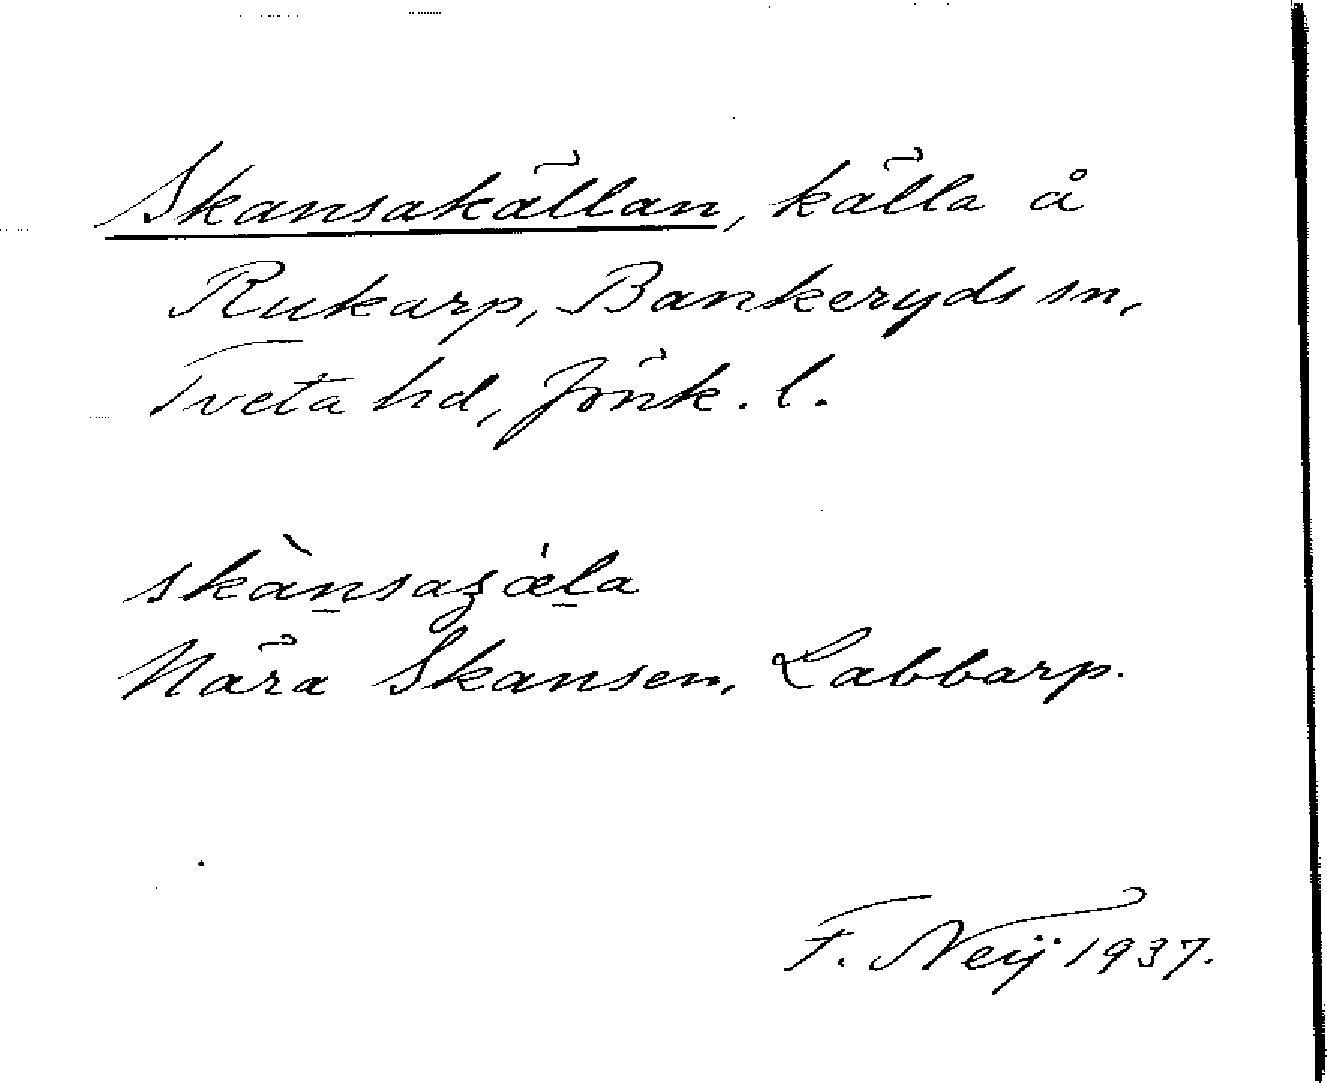 Skansakällan, källa å
Rukarp, Bankeryds sn,
Tveta hd, Jönk. l.
skànsaʒæ̍la
Nära Skansen, Labbarp.
F. Neij 1937.